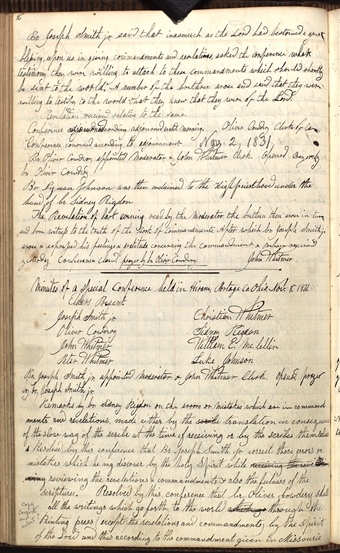 16
Br. Joseph Smith jr. said that inasmuch as the Lord had bestowed a great
blessing upon us in giving commandments and revelations, asked the conference what
testimony they were willing to attach to these commandments which should shortly
be sent to the world. A number of the brethren arose and said that they were
willing to testify to the world that they knew that they were of the Lord.
Revelation received relative to the same
Conference adjourned until morning. Oliver Cowdery Clerk of Con
Conference convened according to adjournment Nov. 2, 1831
Br. Oliver Cowdery appointed Moderator & John Whitmer Clerk. Opened
by Oliver Cowdery
Br. Lyman Johnson was then ordained to the High priesthood under the
hand of br. Sidney Rigdon
The Revelation of last evening read by the Moderator the brethren then arose in turn
and bore witness to the truth of the Book of Commandments. After which br. Joseph Smith jr.
arose & expressed his feelings & gratitude concerning the commandment & preface received
yesterday Conference closed prayer by br. Oliver Cowdery. John Whitmer
Minutes of a Special Conference held in Hiram, Portage Co Ohio Nov. 8, 1831
Elders Present
Joseph Smith jr. Christian Whitmer
Oliver Cowdery Sidney Rigdon
John Whitmer William E. McLellin
Peter Whitmer Luke Johnson
Br. Joseph Smith jr. appointed Moderator & John Whitmer Clerk. Opened prayer
by br. Joseph Smith jr.
Remarks by br. Sidney Rigdon on the errors or mistakes which are in command
ments and revelations, made either by the translation in consequence
of the slow way of the scribe at the time of receiving or by the scribes themselves
Resolved by this conference that Br Joseph Smith jr correct those errors or
mistakes which he may discover by the holy Spirit while
reviewing the revelations & commandments & also the fulness of the
scriptures. Resolved by this conference that br Oliver Cowdery shall
all the writings which go forth to the world through the
Printing press except the revelations and commandments, by the Spirit
of the Lord and this according to the commandment given in Missouri